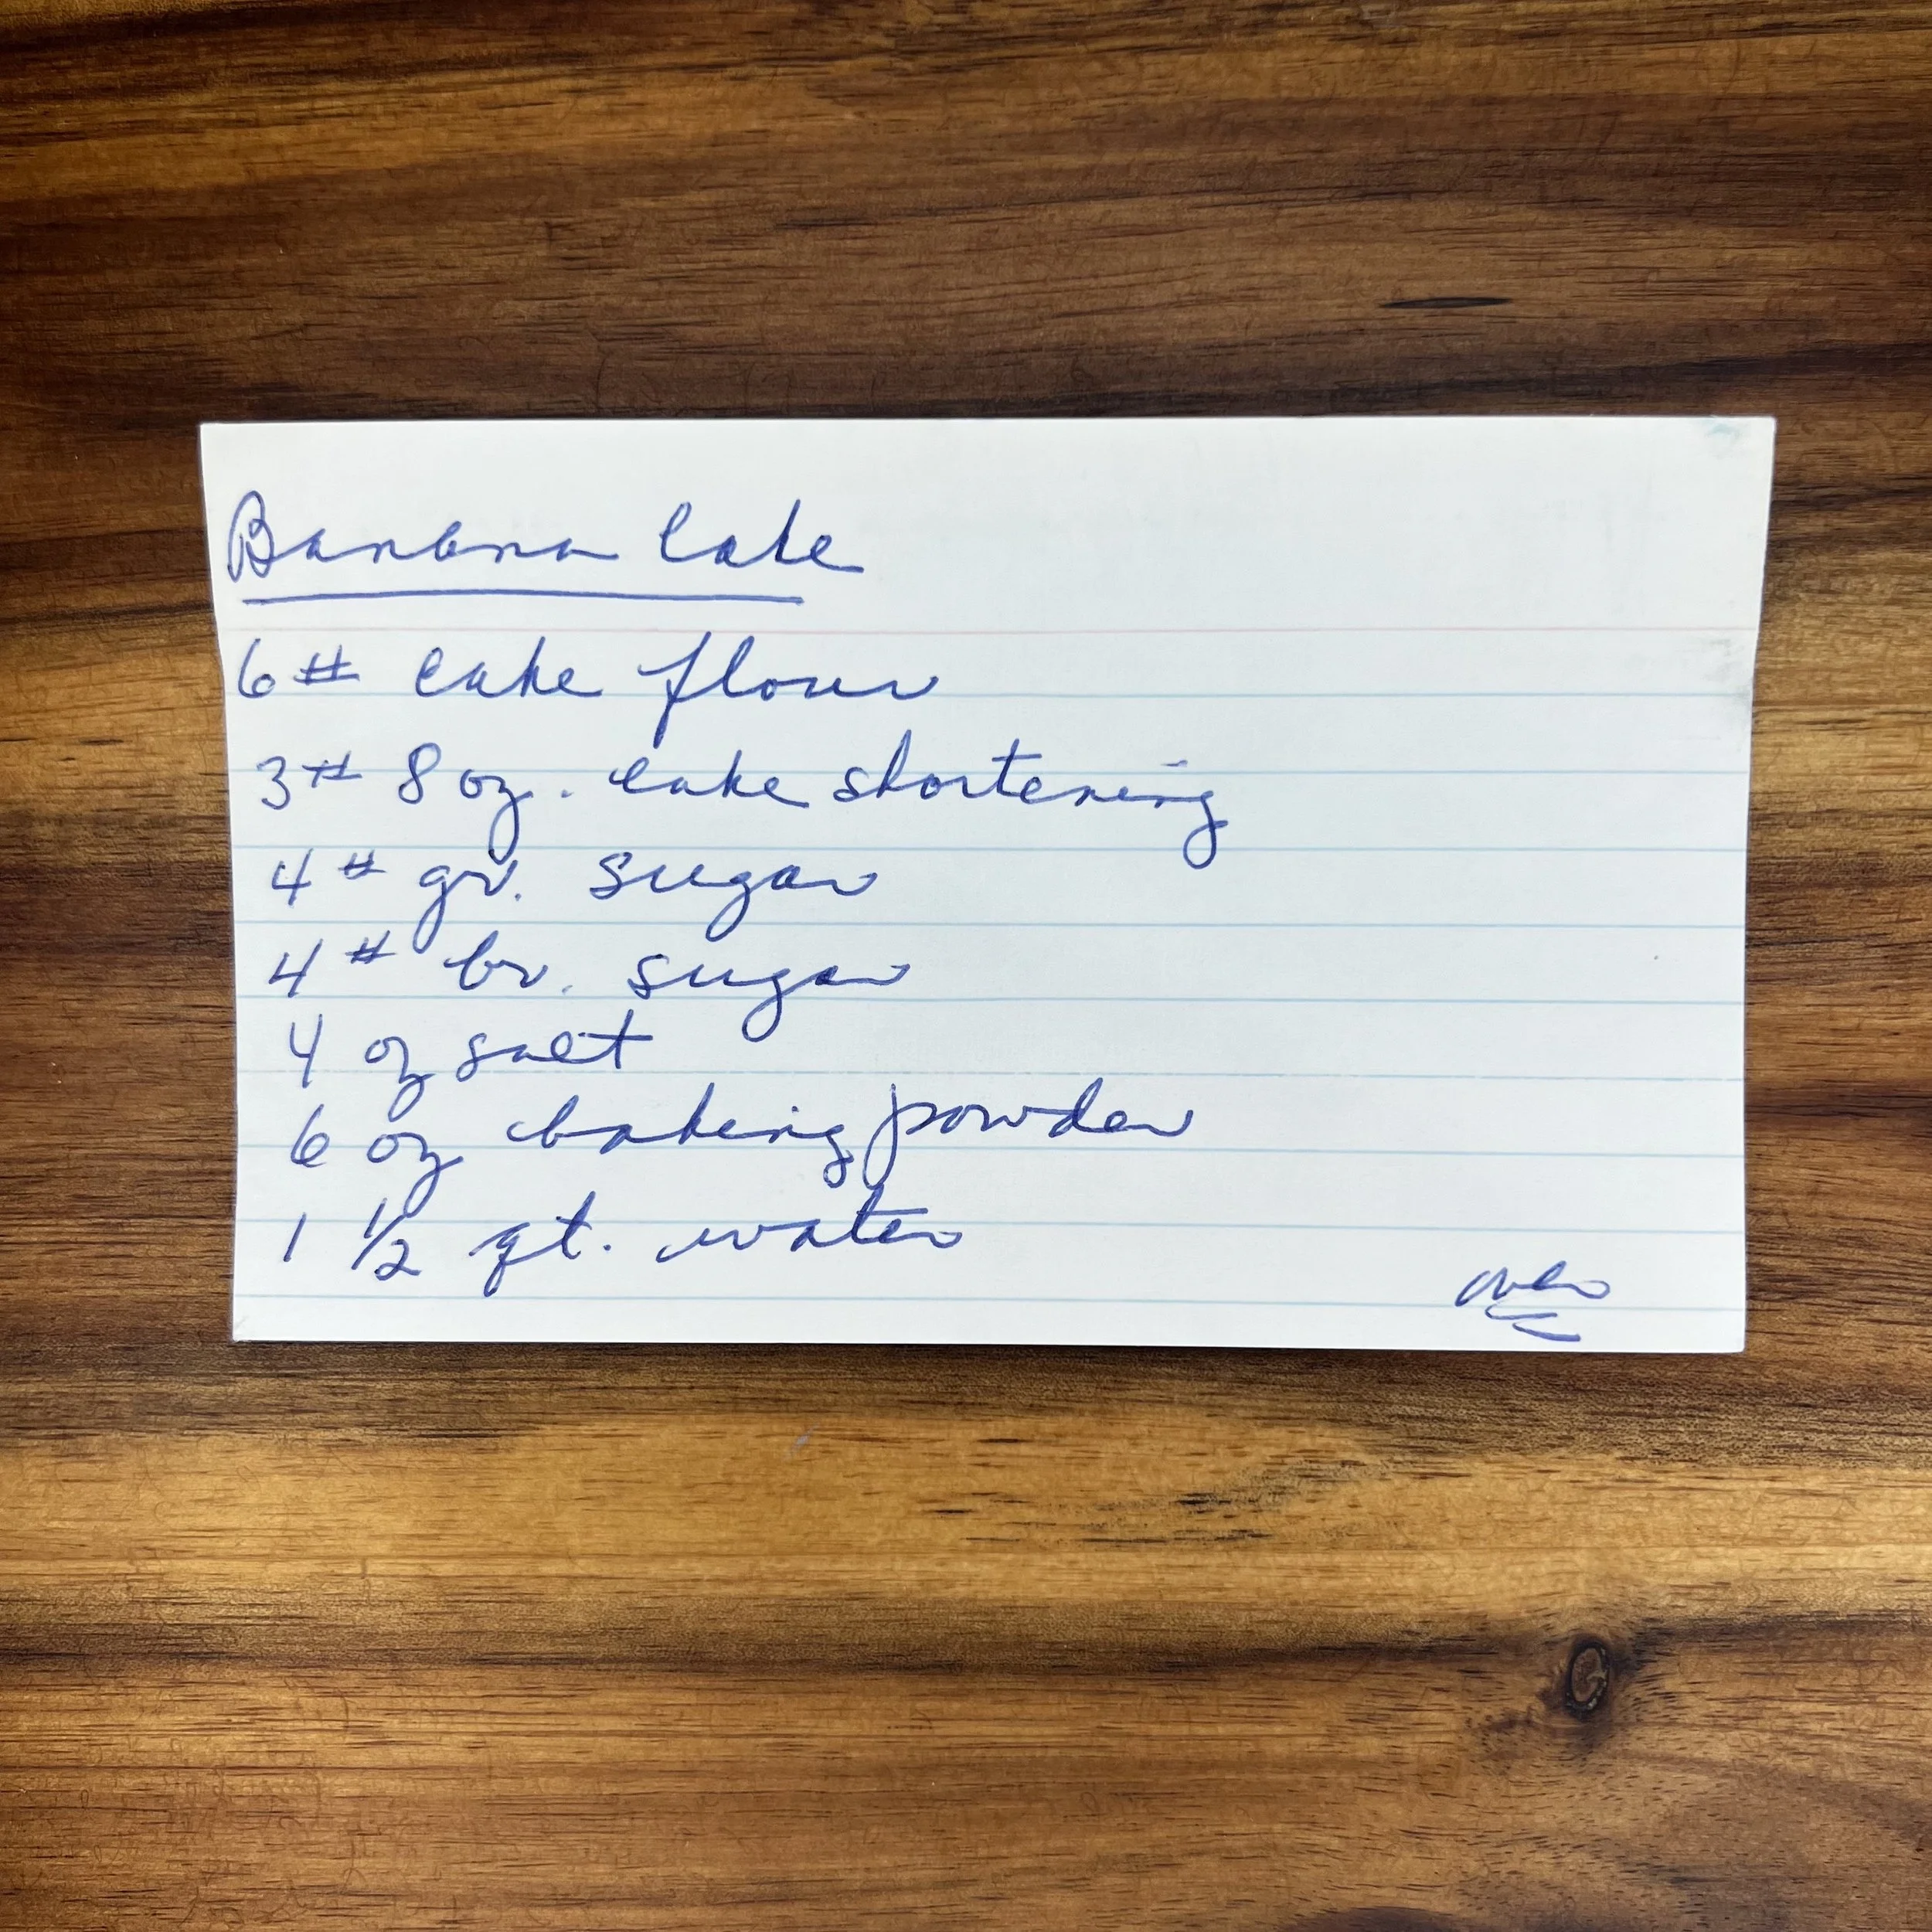 Banana Cake
6# cake flour
3# 8 oz. cake shortening
4# gr. sugar
4# br. sugar
4 oz salt
6 oz baking powder
1 1/2 qt. water
over